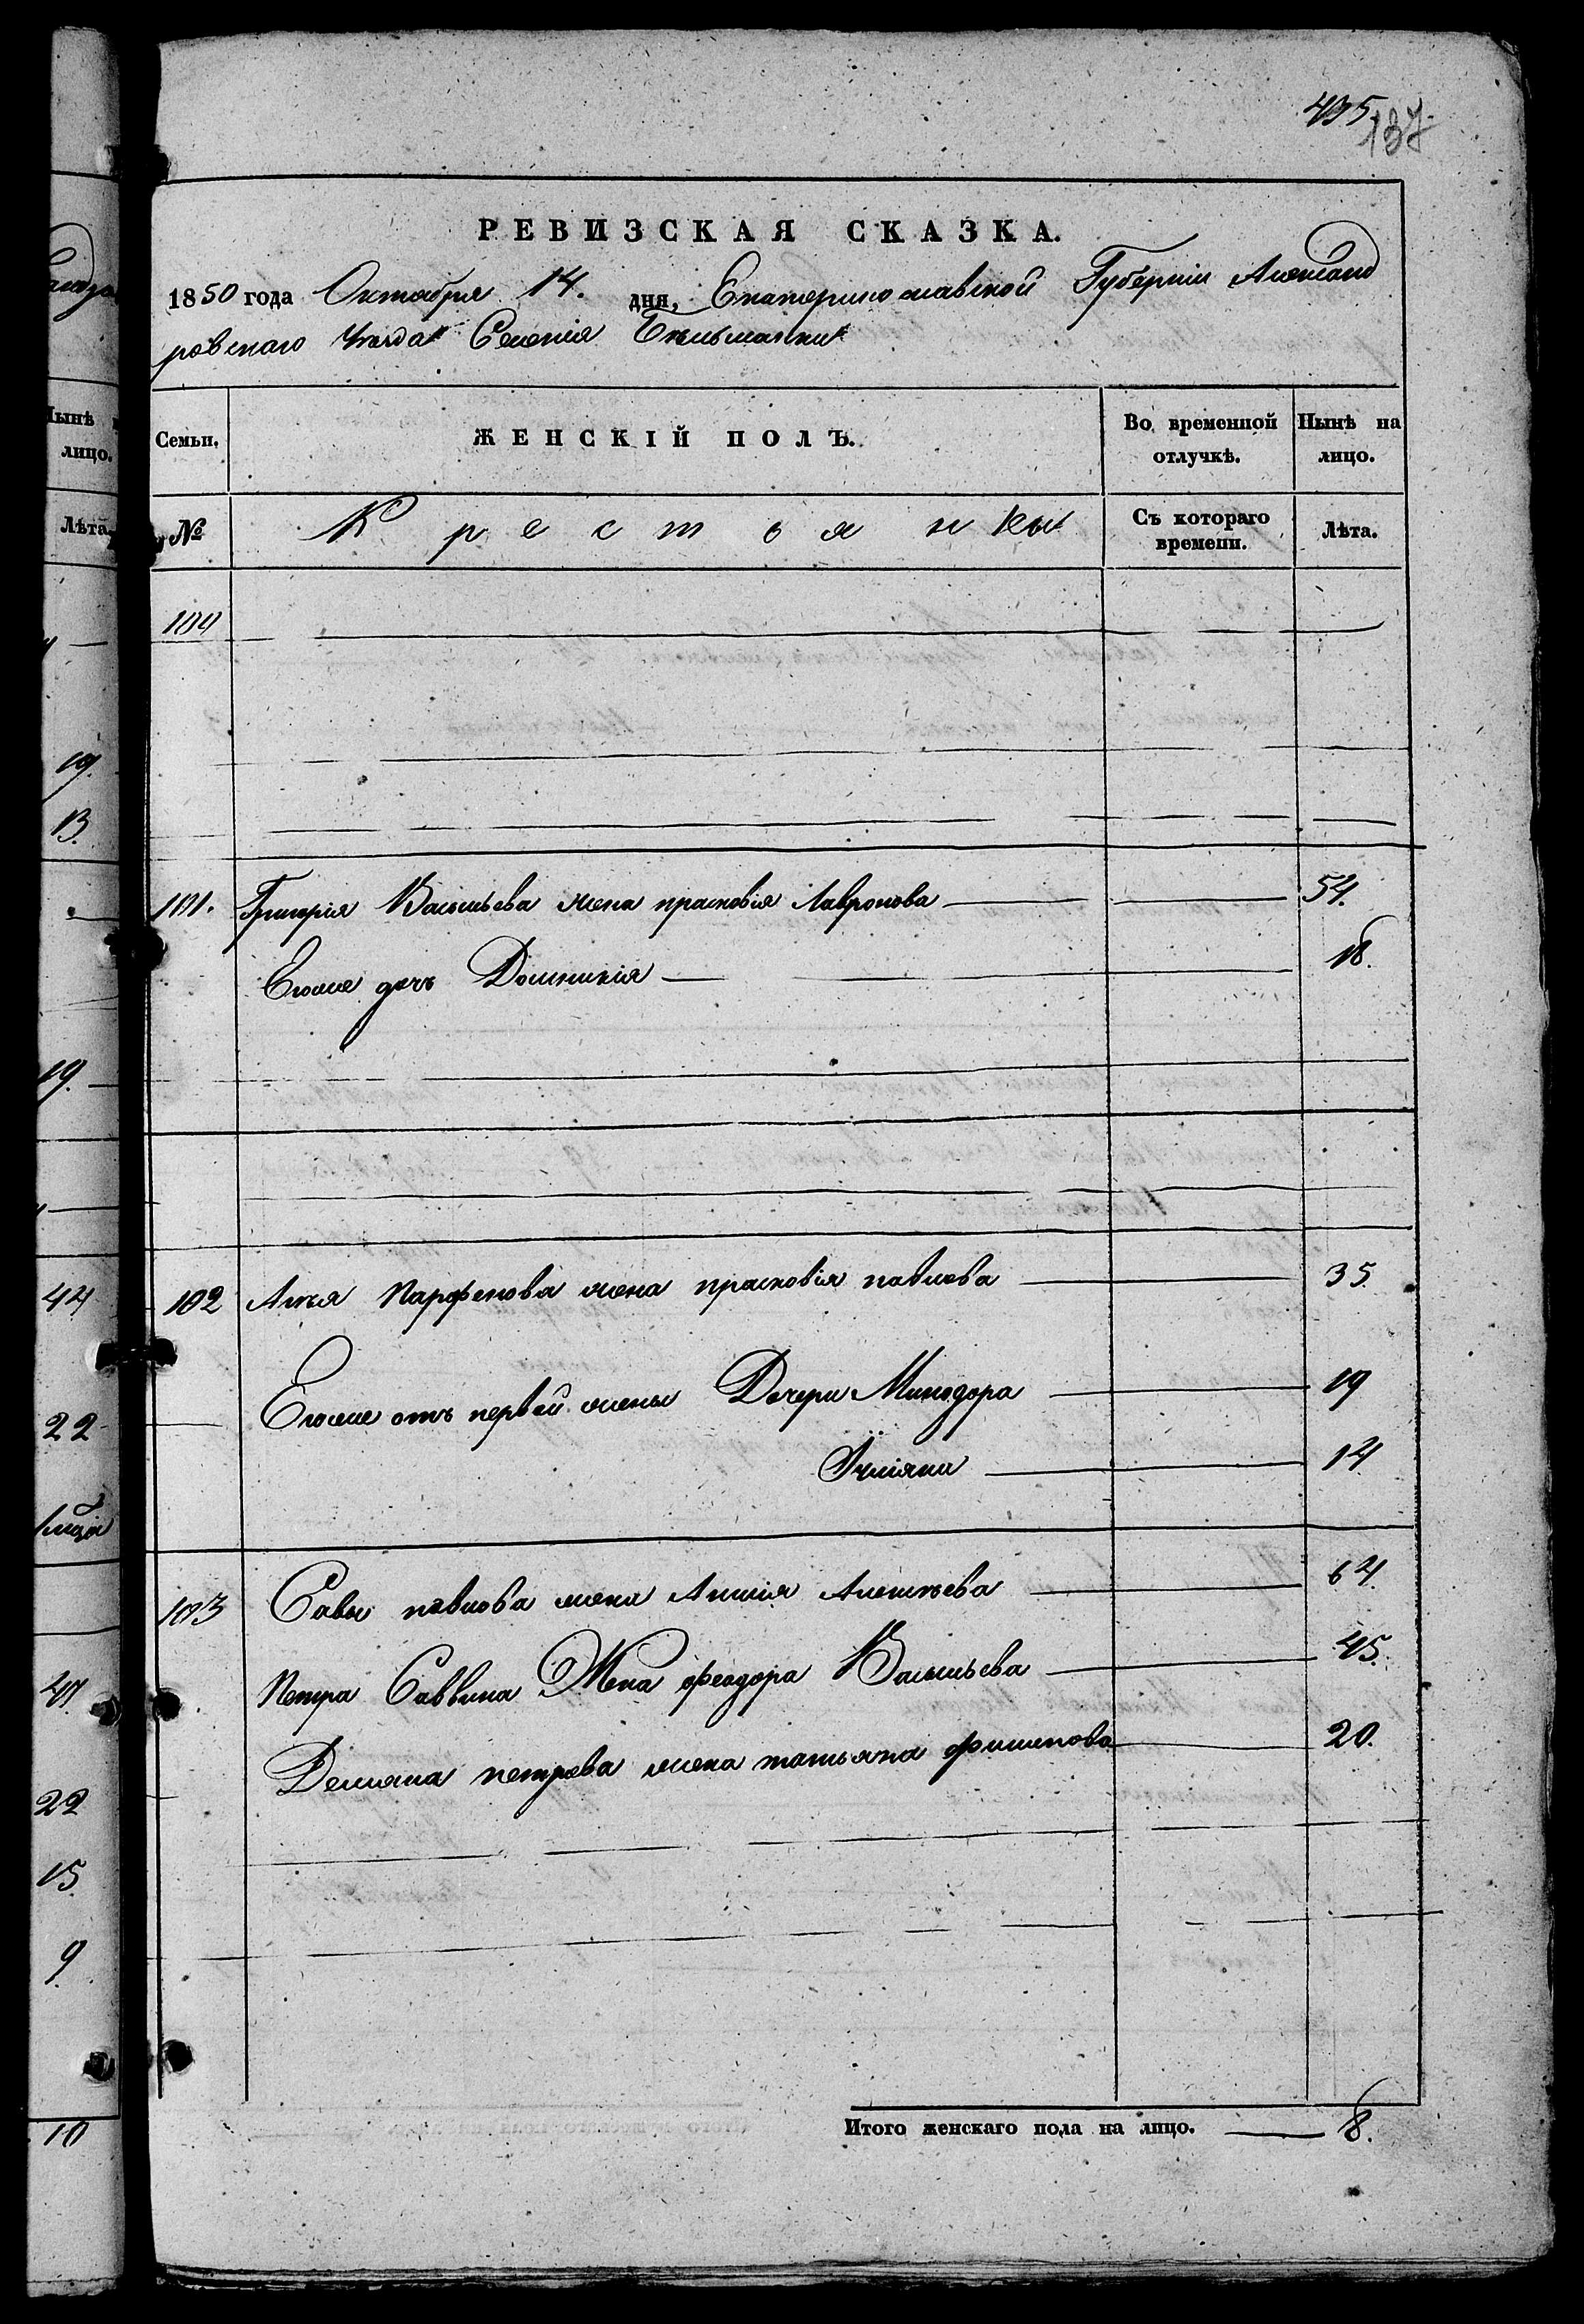 435.
137
РЕВИЗСКАЯ СКАЗКА.
1850 года Октября 14. дня, Екатеринославской Губерніи Александ
ровскаго Уезда Селенія Бѣльманки
Семьи.
ЖЕНСКІЙ ПОЛЪ.
Во временной отлучкѣ.
Нынѣ на лицо.
№
Крестьянки
Съ котораго времени.
Лѣта.
Нынѣ
лицо.
Лѣта.
19.
13.
19.
44
22
22
15.
9.
10
101. Григорія Васильева жена прасковія Лавронова 54.
Егоже дочь Домникія 18.
102 Парфенова жена прасковія павлова 35
Егоже отъ первой жены Дочери Минодора 19
Іуліяна 14
103 Савы павлова жена Алексѣева 64.
Петра Саввина Жена феодора Васильева 45.
Демьяна петрова жена татьяна филипова 20.
Итого женскаго пола на лицо. 8.